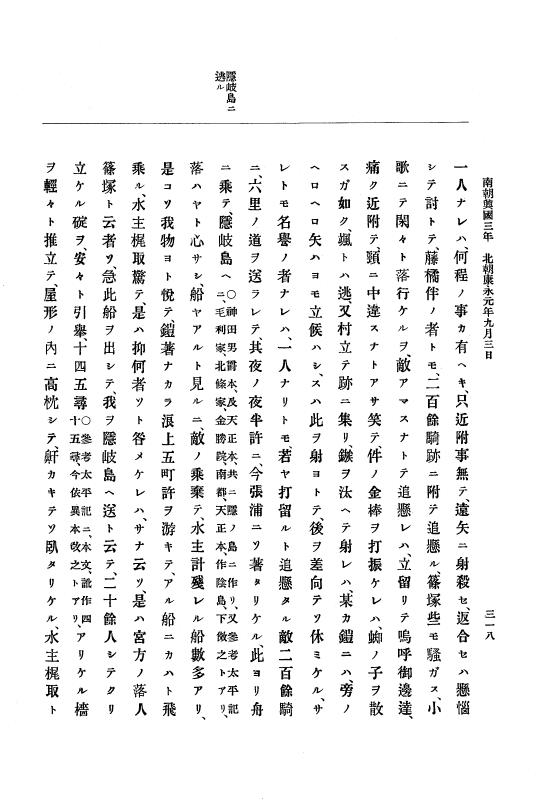 南朝興國三年 北朝康永元年九月三日
三一八
隱岐島ニ
逃ル
一人ナレハ、何程ノ事カ有ヘキ、只近附事無テ、遠矢ニ射殺セ、返合セハ懸惱
シテ討トテ、藤橘伴ノ者トモ、二百餘騎跡ニ附テ追懸ル、篠塚些モ騷ガス、小
歌ニテ閑々ト落行ケルヲ、敵アマスナトテ追懸レハ、立留リテ嗚呼御邊達、
痛ク近附テ、頸ニ中違スナトアサ笑テ、件ノ金棒ヲ打振ケレハ、蜘ノ子ヲ散
スガ如ク、颯トハ逃、又村立テ跡ニ集リ、鏃ヲ汰ヘテ射レハ、某カ鎧ニハ、旁ノ
ヘロヘロ矢ハヨモ立候ハシ、スハ此ヲ射ヨトテ、後ヲ差向テソ休ミケル、サ
レトモ名譽ノ者ナレハ、一人ナリトモ、若ヤ打留ルト追懸タル敵二百餘騎
ニ、六里ノ道ヲ送ラレテ、其夜ノ夜半許ニ、今張浦ニソ著タリケル、此ヨリ舟
ニ乘テ、隱岐島ヘ〇神田男爵本、及天正本、共ニ隱ノ島ニ作リ、又參考太平記
ニ、毛利家、北條家、金勝院、南都、天正本、作陰島、下倣之トアリ、
落ハヤト心サシ、船ヤアルト見ルニ、敵ノ乘棄テ、水主計殘レル船數多アリ、
是コソ我物ヨト悅テ、鎧著ナカラ浪上五町許ヲ游キテ、アル船ニカハト飛
乘ル、水主梶取驚テ、是ハ抑何者ソト咎メケレハ、サナ云ソ、是ハ宮方ノ落人
篠塚ト云者ソ、急此船ヲ出シテ、我ヲ隱岐島ヘ送ト云テ、二十餘人シテクリ
立ケル碇ヲ、安々ト引擧、十四五尋〇參考太平記ニ、本文、訛作四
十五尋、今依異本改之トアリ、アリケル檣
ヲ輕々ト推立テ、屋形ノ內ニ高枕シテ、鼾カキテソ臥タリケル、水主梶取ト